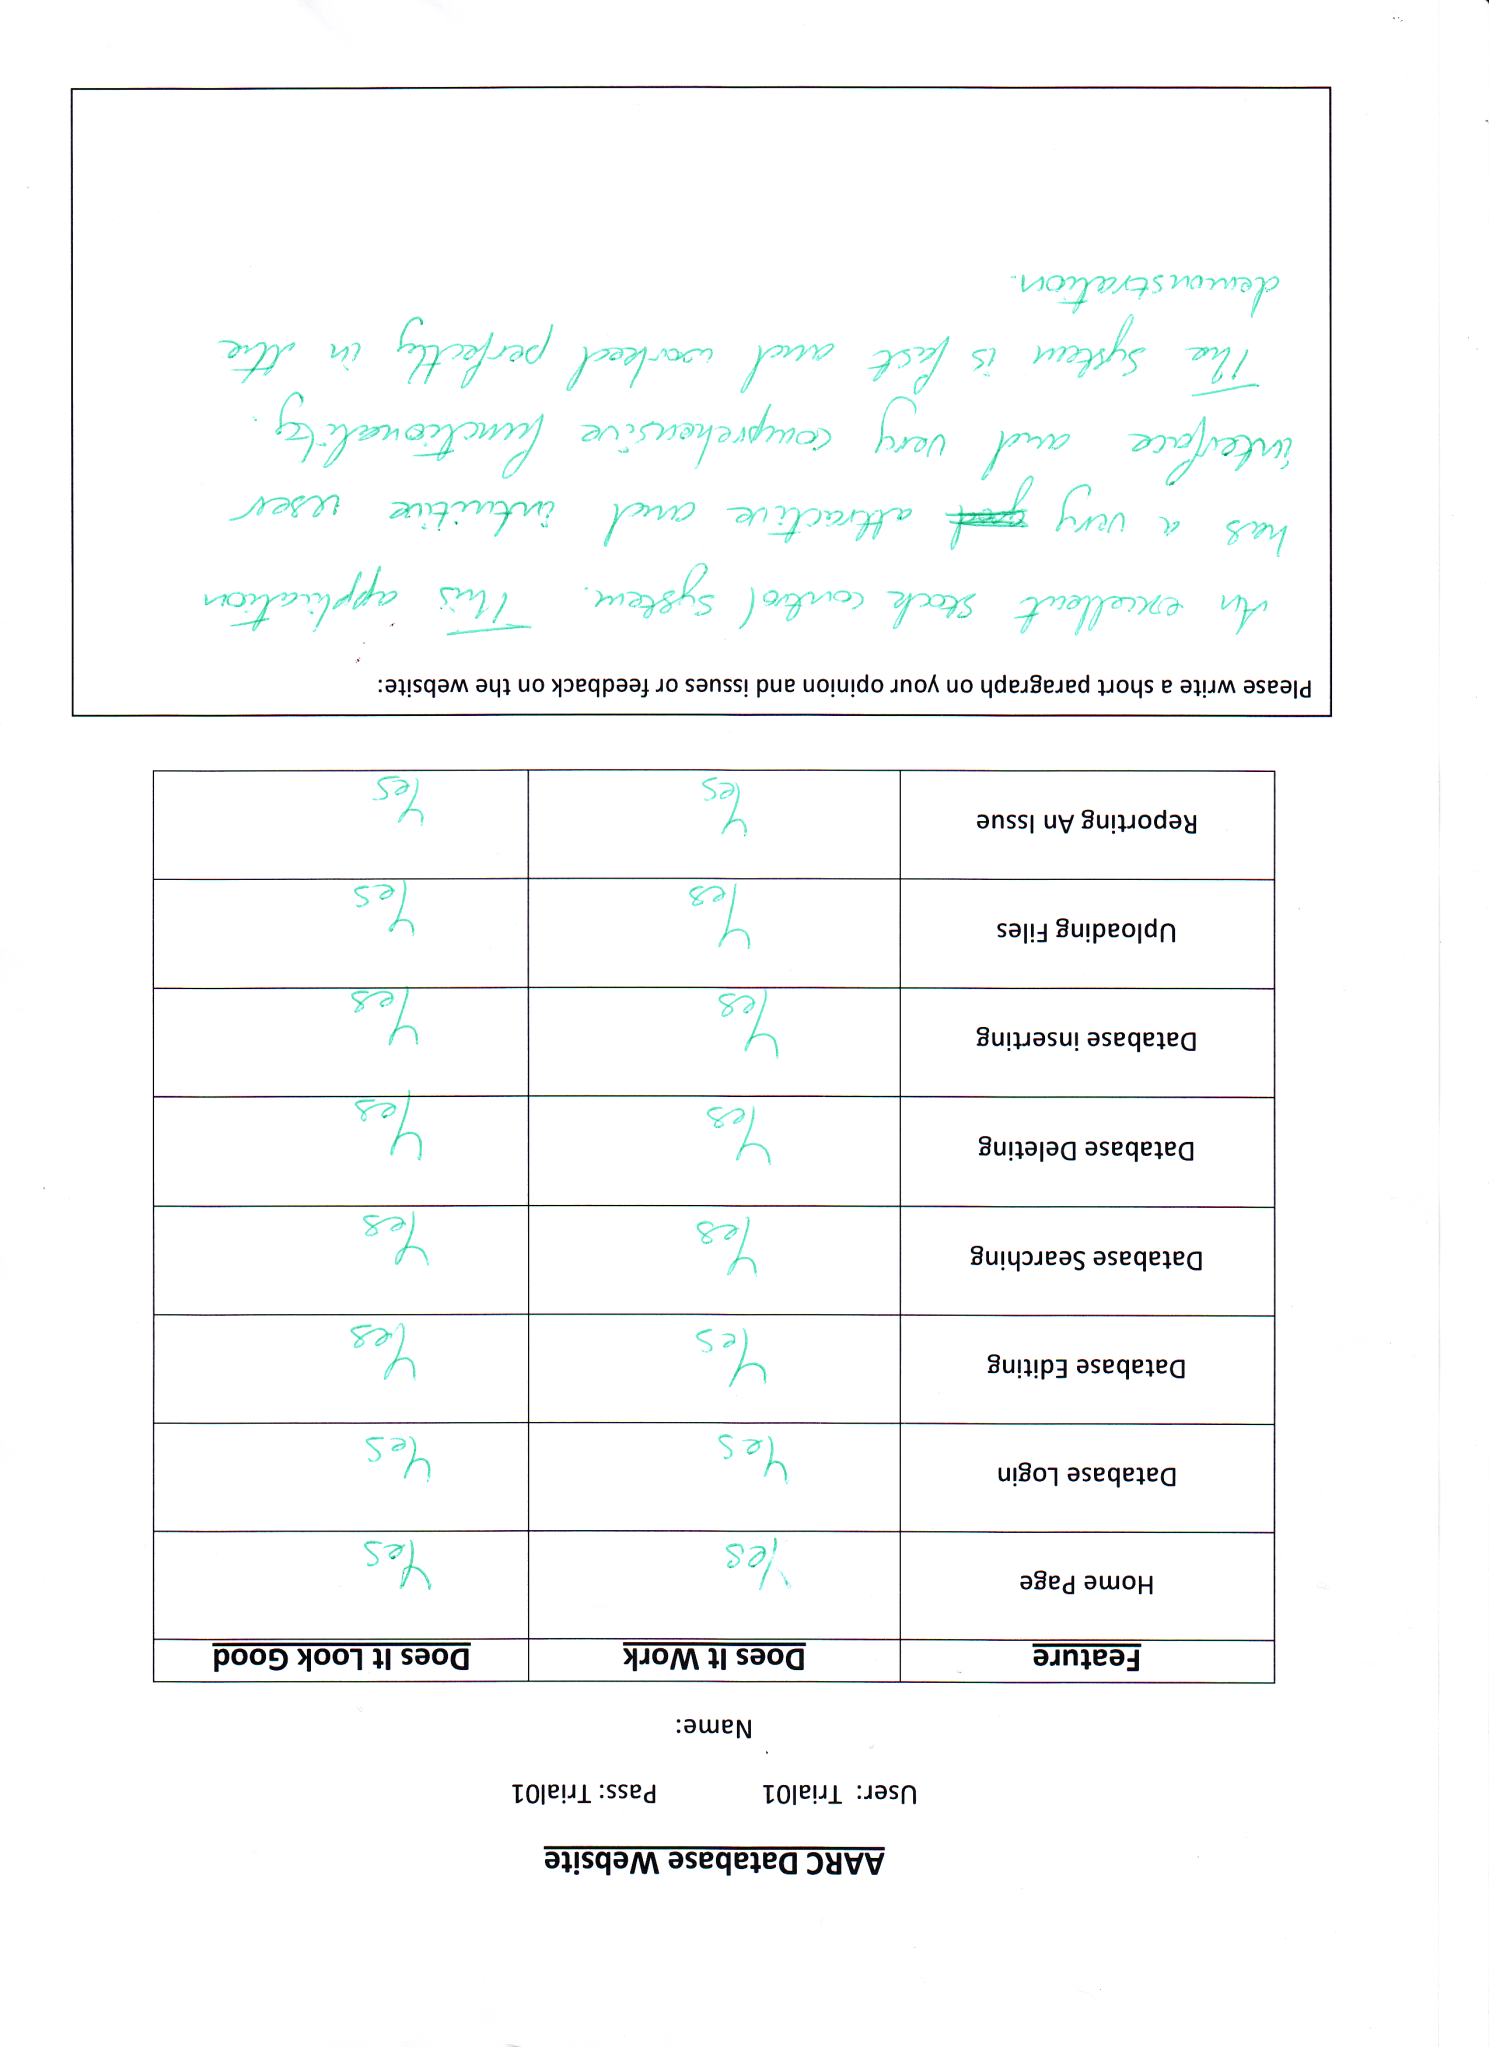 AARC Database Website
User: Trial01 Pass: Trial01
Name:
Feature Does It Work Does It Look Good
Home Page Yes Yes
Database Login Yes Yes
Database Editing Yes Yes
Database Searching Yes Yes
Database Deleting Yes Yes
Database inserting Yes Yes
Uploading Files Yes Yes
Reporting An Issue Yes Yes
Please write a short paragraph on your opinion and issues or feedback on the website:
An excellent stock control system. This application
has a very good attractive and intuitive user
interface and very comprehensive functionality.
The system is fast and worked perfectly in the
demonstration.